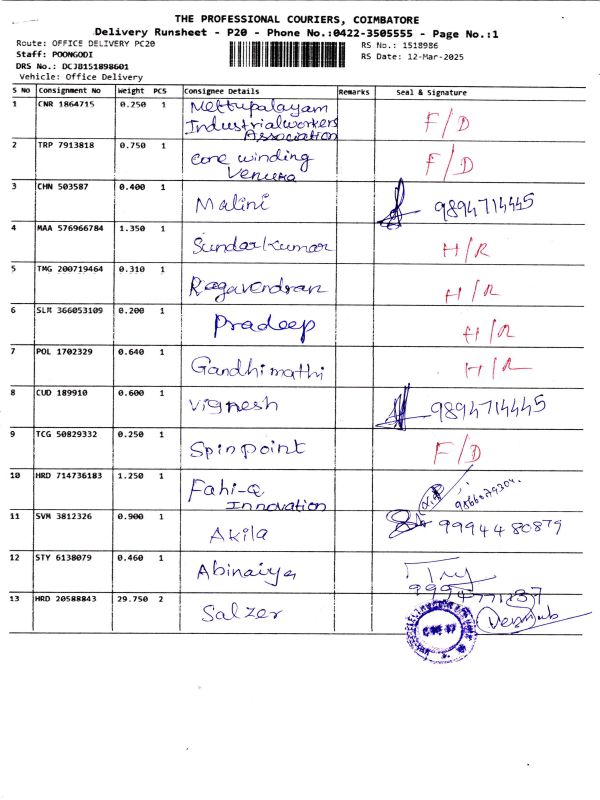 THE PROFESSIONAL COURIERS, COIMBATORE
Delivery Runsheet - P20 - Phone No.:0422-3505555 - Page No.:1
Route: OFFICE DELIVERY PC20 RS No.: 1518986
Staff: POONGODI RS Date: 12-Mar-2025
DRS No.: DCJB151898601
Vehicle: Office Delivery
S No Consignment No Weight PCS Consignee Details Remarks Seal & Signature
1 CNR 1864715 0.250 1 Mettupalayam
Industrial workers
Association F/D
2 TRP 7913818 0.750 1 core winding
Venura F/D
3 CHN 503587 0.400 1 Malini 9894714445
4 MAA 576966784 1.350 1 Sundarkumar H/R
5 TMG 200719464 0.310 1 Ragavendran H/R
6 SLM 366053109 0.200 1 Pradeep H/R
7 POL 1702329 0.640 1 Gandhimathi H/R
8 CUD 189910 0.600 1 Vignesh 9894714445
9 TCG 50829332 0.250 1 Spinpoint F/D
10 HRD 714736183 1.250 1 Fahi-Q
Innovation
11 SVM 3812326 0.900 1 Akila 9994480879
12 STY 6138079 0.460 1 Abinaiya
13 HRD 20588843 29.750 2 Salzer